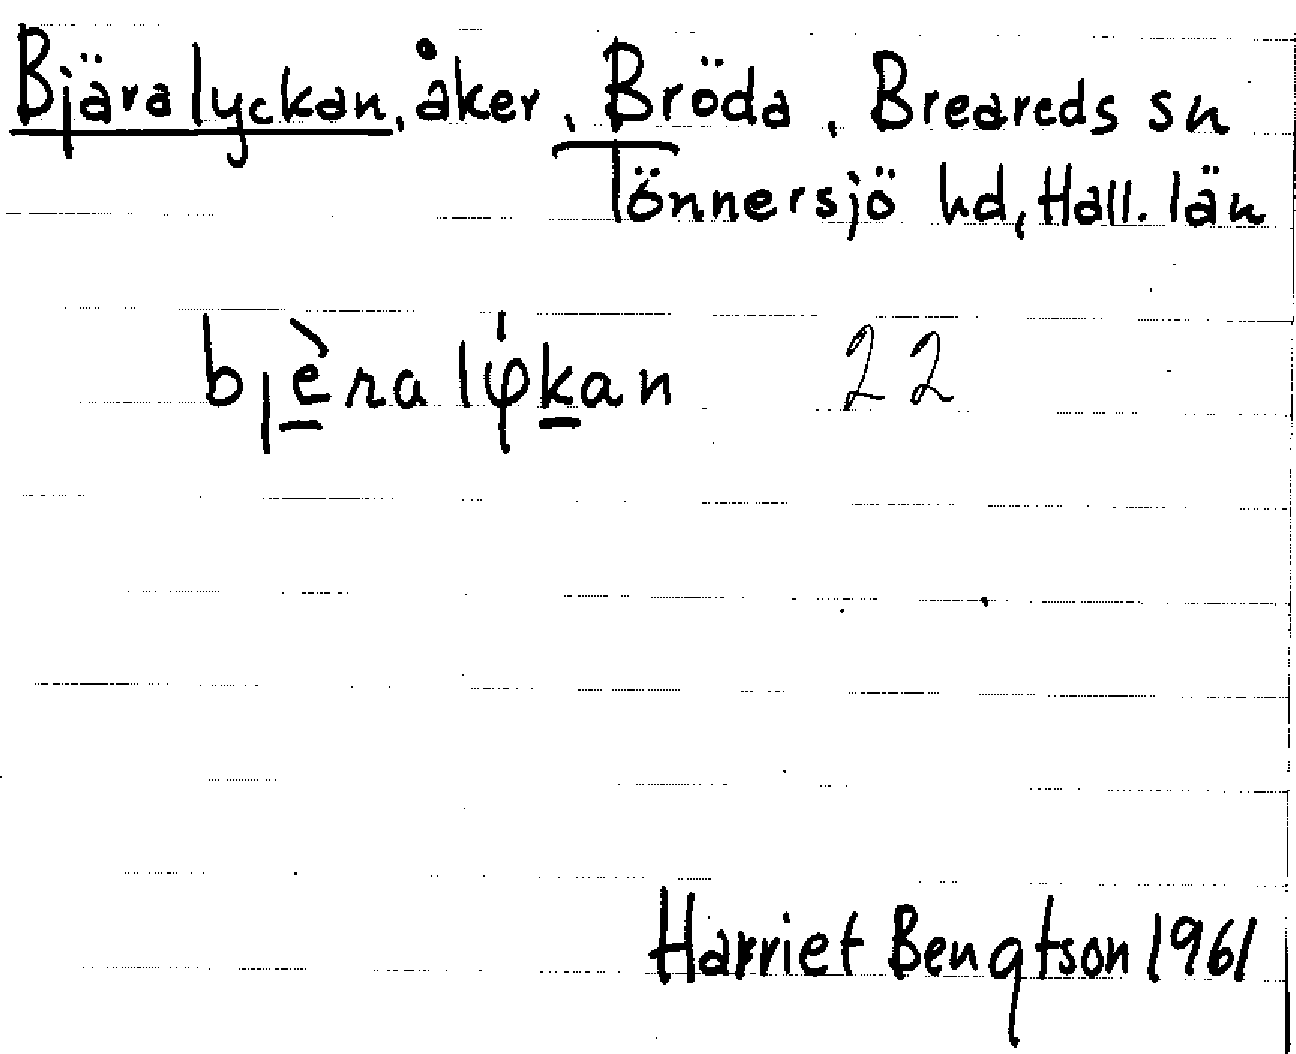 Bjäralyckan, åker, Bröda, Breareds sn
Tönnersjö hd, Hall. län
bjèralýkan 22
Harriet Bengtson 1961